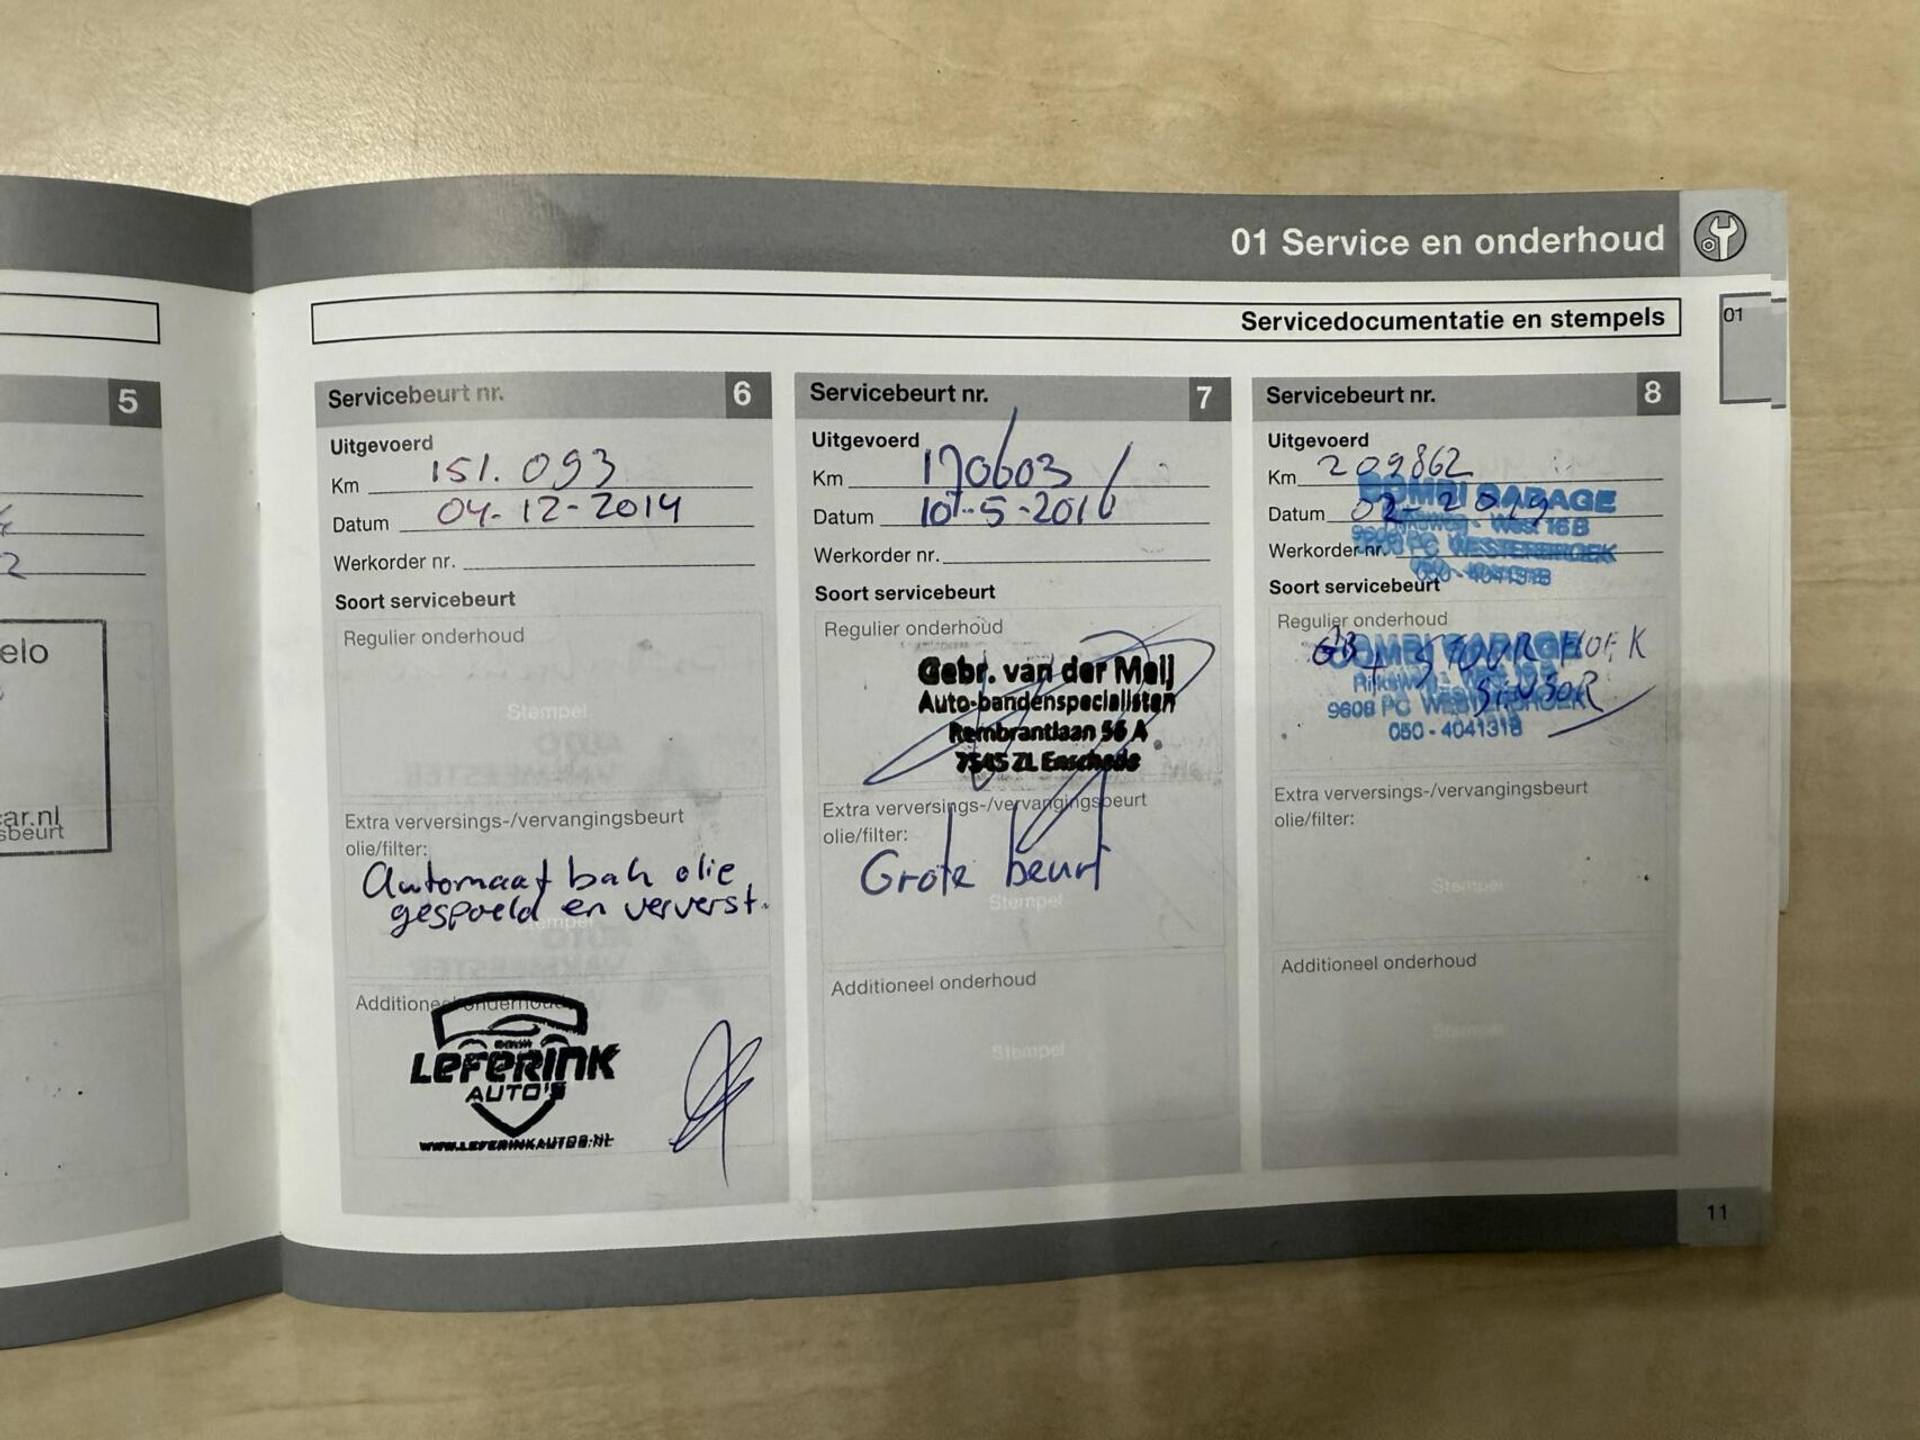 01 Service en onderhoud
Servicedocumentatie en stempels
01
5
2
elo
car.nl
sbeurt
Servicebeurt nr. 6
Uitgevoerd
Km 151.093
Datum 04-12-2014
Werkorder nr.
Soort servicebeurt
Regulier onderhoud
Stempel
Extra verversings-/vervangingsbeurt
olie/filter:
Automaat bak olie
gespoeld en ververst.
Stempel
Additioneel onderhoud
LEFERINK
AUTO'S
WWW.LEFERINKAUTOS.NL
Servicebeurt nr. 7
Uitgevoerd
Km 170603
Datum 10-5-2016
Werkorder nr.
Soort servicebeurt
Regulier onderhoud
Gebr. van der Meij
Auto-bandenspecialisten
Rembrantlaan 56 A
7545 ZL Enschede
Extra verversings-/vervangingsbeurt
olie/filter:
Grote beurt
Stempel
Additioneel onderhoud
Stempel
Servicebeurt nr. 8
Uitgevoerd
Km 209862
COMBI GARAGE
Datum 02-2019
Rijksweg - West 16B
Werkorder nr.
9608 PC WESTERBROEK
050 - 4041318
Soort servicebeurt
Regulier onderhoud
COMBI GARAGE
GB + STUURHOEK
SENSOR
Rijksweg - West 16B
9608 PC WESTERBROEK
050 - 4041318
Extra verversings-/vervangingsbeurt
olie/filter:
Stempel
Additioneel onderhoud
Stempel
11